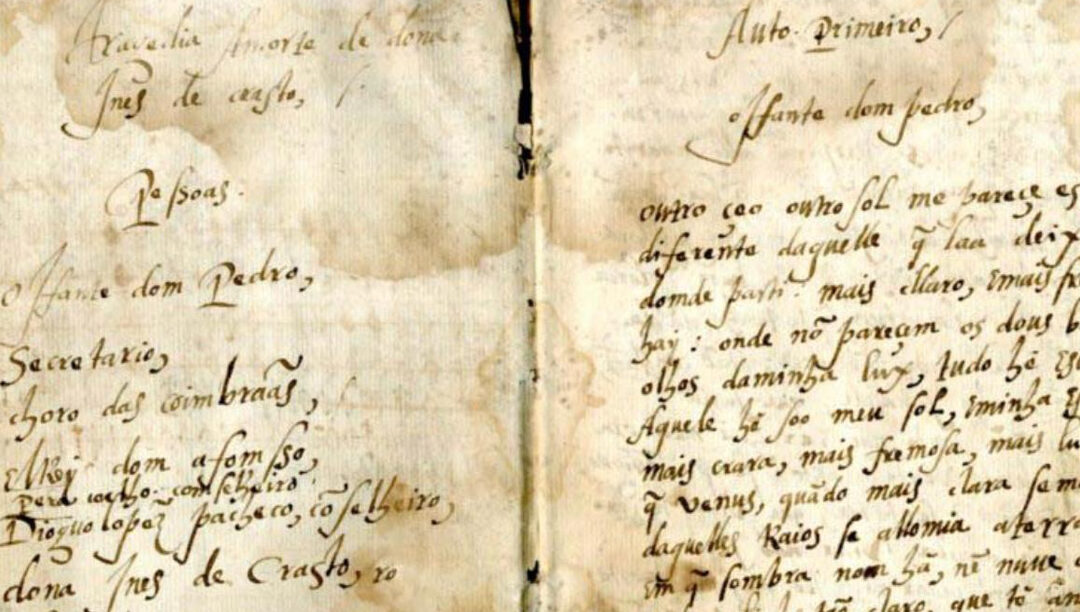 Tragedia & morte de dona
Ines de crasto,
Pessoas.
o Iffante dom Pedro,
Secretario,
choro das coimbraãs,
ElRey dom afomsso,
pero coelho conselheiro
Dioguo lopez pacheco, cõselheiro,
dona Ines de Crasto,
Auto Primeiro,
o Iffante dom pedro,
outro çeo outro sol me pareçe
diferente daquelle q̃ laa
domde parti: mais cllaro, Emais
hay: onde nõ pareçem os dous
olhos daminha lux, tudo hé
Aquele hé soo meu sol, Eminha
mais crara, mais fremosa, mais
q̃ venus, quãdo mais clara
daquelles Raios se allomia
Em q̃ sombra nom há, nẽ nuve
claro que